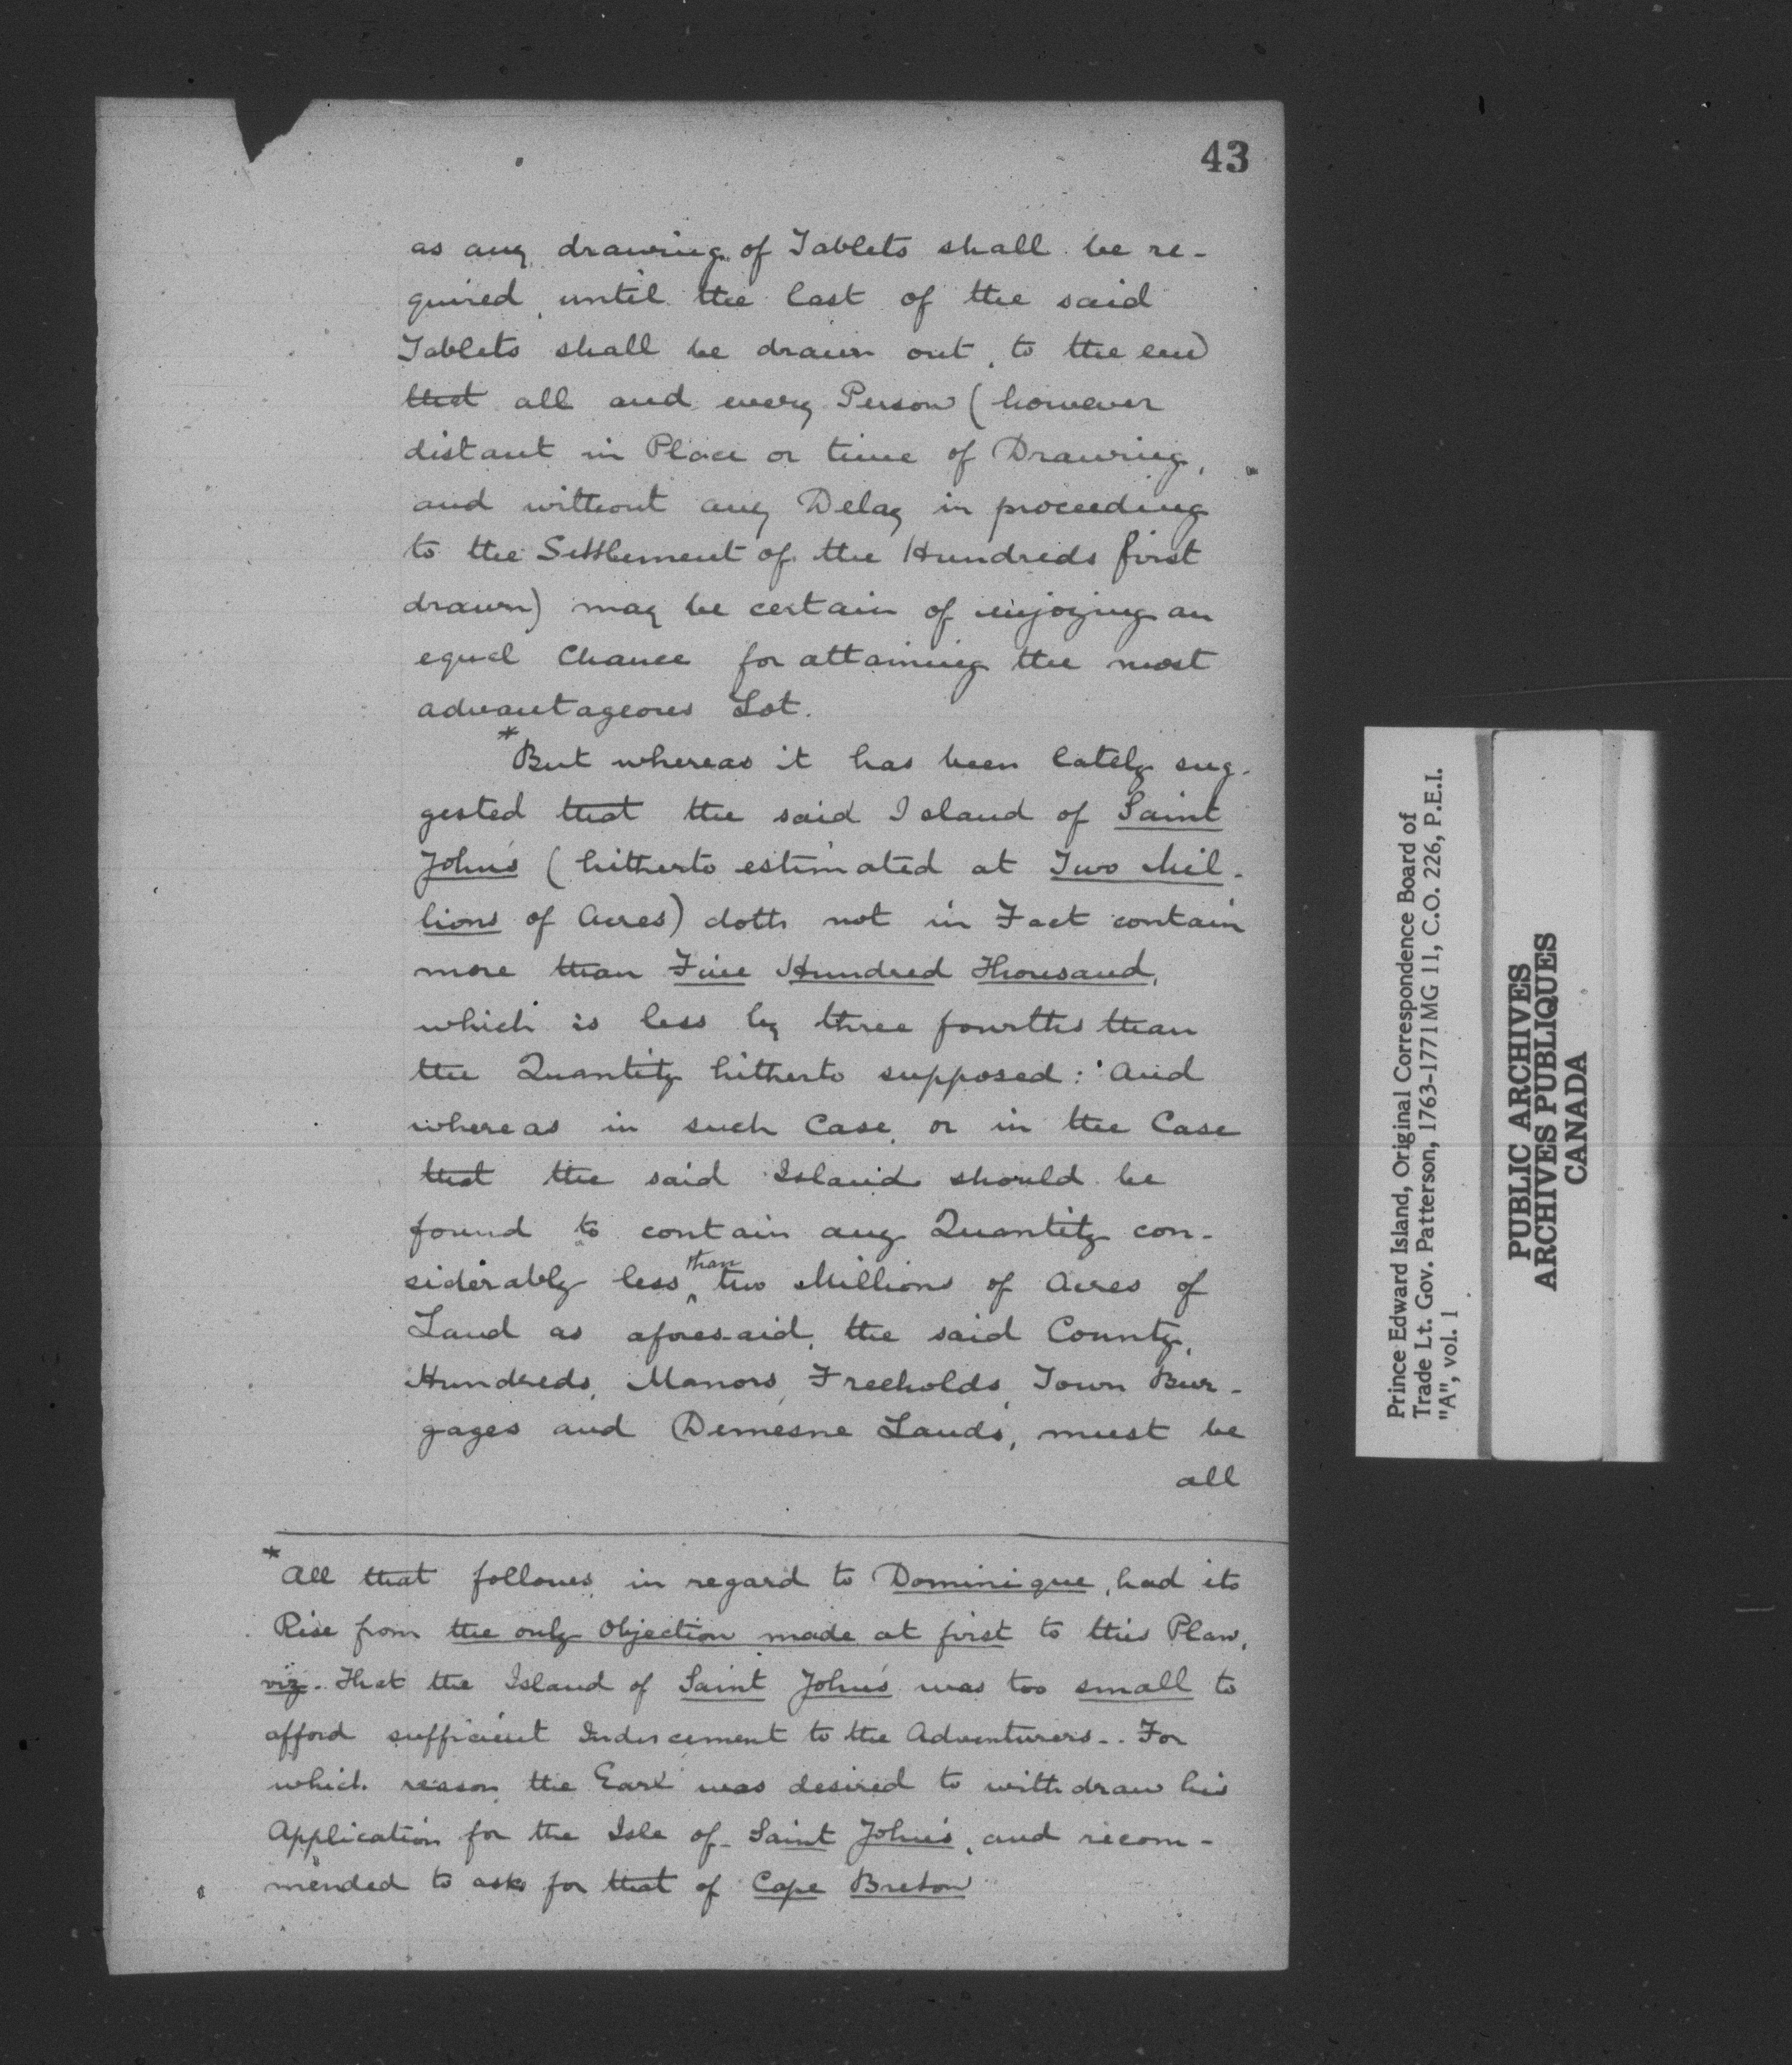 43
as any drawing of Tablets shall be re-
quired, until the last of the said
Tablets shall be drawn out, to the end
that all and every Person (however
distant in Place or time of Drawing,
and without any Delay in proceeding
to the Settlement of the Hundreds first
drawn) may be certain of enjoying an
equal Chance for attaining the most
advantageous Lot.
*But whereas it has been lately sug-
gested that the said Island of Saint
John's (hitherto estimated at Two Mil-
lions of Acres) doth not in Fact contain
more than Five Hundred Thousand,
which is less by three fourths than
the Quantity hitherto supposed: And
whereas in such Case, or in the Case
that the said Island should be
found to contain any Quantity con-
siderably less than two Millions of Acres of
Land as aforesaid, the said County,
Hundreds, Manors, Freeholds, Town Bur-
gages and Demesne Lands, must be
all
*All that follows, in regard to Dominique, had its
Rise from the only Objection made at first to this Plan,
viz. That the Island of Saint John's was too small to
afford sufficient Inducement to the Adventurers.. For
which reason the Earl was desired to withdraw his
Application for the Isle of Saint John's, and recom-
mended to ask for that of Cape Breton
Prince Edward Island, Original Correspondence Board of
Trade Lt. Gov. Patterson, 1763-1771 MG 11, C.O. 226, P.E.I.
"A", vol. 1
PUBLIC ARCHIVES
ARCHIVES PUBLIQUES
CANADA